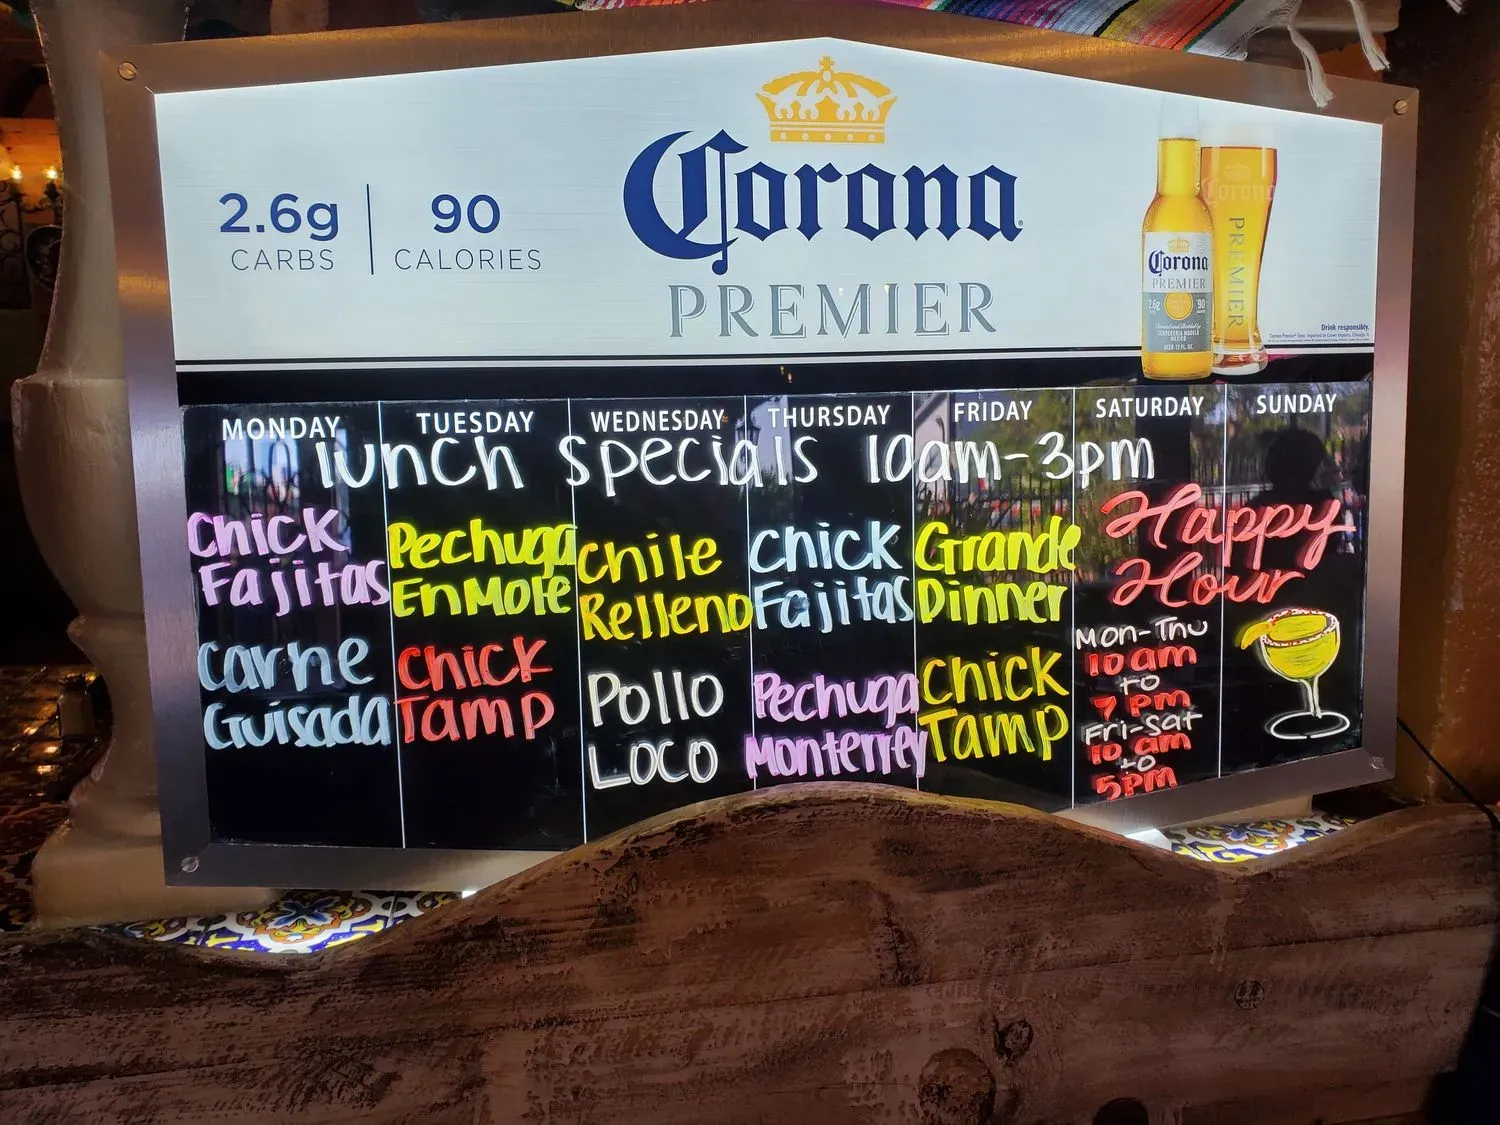 2.6g
CARBS
90
CALORIES
Corona
PREMIER
Corona
PREMIER
2.6g
90
PREMIER
Drink responsibly.
MONDAY TUESDAY WEDNESDAY THURSDAY FRIDAY SATURDAY SUNDAY
lunch specials 10am-3pm
Chick
Fajitas
Carne
Guisada
Pechuga
En Mole
Chick
Tamp
Chile
Relleno
Pollo
Loco
Chick
Fajitas
Pechuga
Monterrey
Grande
Dinner
Chick
Tamp
Happy
Hour
Mon-Thu
10am
to
7pm
Fri-Sat
10 am
to
5pm